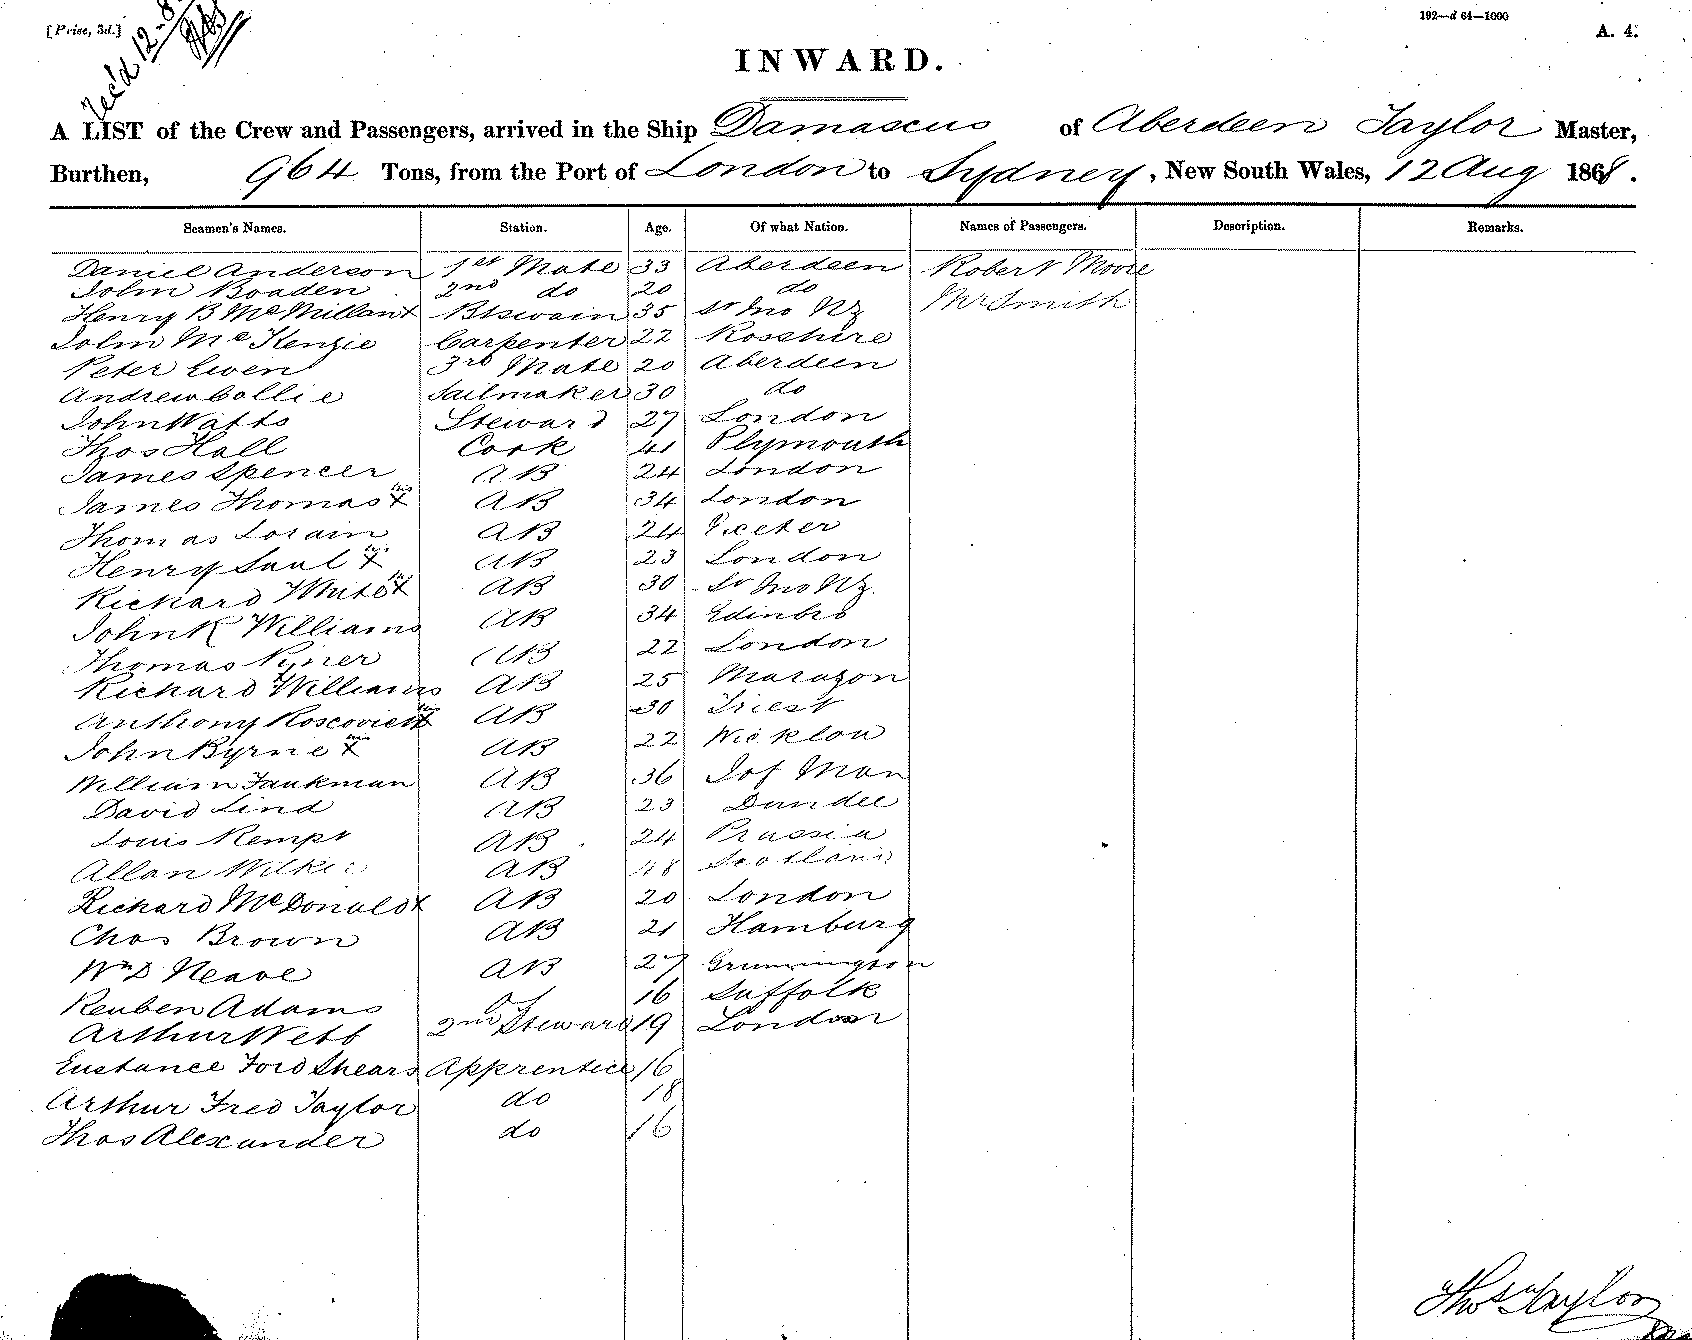 [Price, 3d.]
Rec'd 12-8
192—d 64—1000
A. 4.
INWARD.
A LIST of the Crew and Passengers, arrived in the Ship Damascus of Aberdeen Taylor Master,
Burthen, 964 Tons, from the Port of London to Sydney, New South Wales, 12 Aug 1868.
Seamen's Names. Station. Age. Of what Nation. Names of Passengers. Description. Remarks.
Daniel Anderson 1st Mate 33 Aberdeen Robert Moore
John Boaden 2nd do 20 do Mr Smith
Henry B McMillant Btswain 35 St Jno Nz
John McKenzie Carpenter 22 Rosshire
Peter Ewen 3rd Mate 20 Aberdeen
Andrew Collie Sailmaker 30 do
John Watts Steward 27 London
Thos Hall Cook 41 Plymouth
James Spencer AB 24 London
James Thomas x AB 34 London
Thomas Lorain AB 24 Exeter
Henry Saul x AB 23 London
Richard White x AB 30 St Jno Nz.
John R Williams AB 34 Edinbro
Thomas Pyner AB 22 London
Richard Williams AB 25 Marazon
Anthony x AB 30 Triest
John Byrne x AB 22 Wicklow
William Faukman AB 36 I of Man
David Lind AB 23 Dundee
Louis Kempt AB 24 Prussia
Allan Wilkie AB 48 Scotland
Richard McDonald x AB 20 London
Chas Brown AB 21 Hamburg
Wm D Neave AB 27
Reuben Adams 16 Suffolk
Arthur Webb 2nd Steward 19 London
Eustance Ford Shears Apprentice 16
Arthur Fred Taylor do 18
Thos Alexander do 16
Thos Taylor